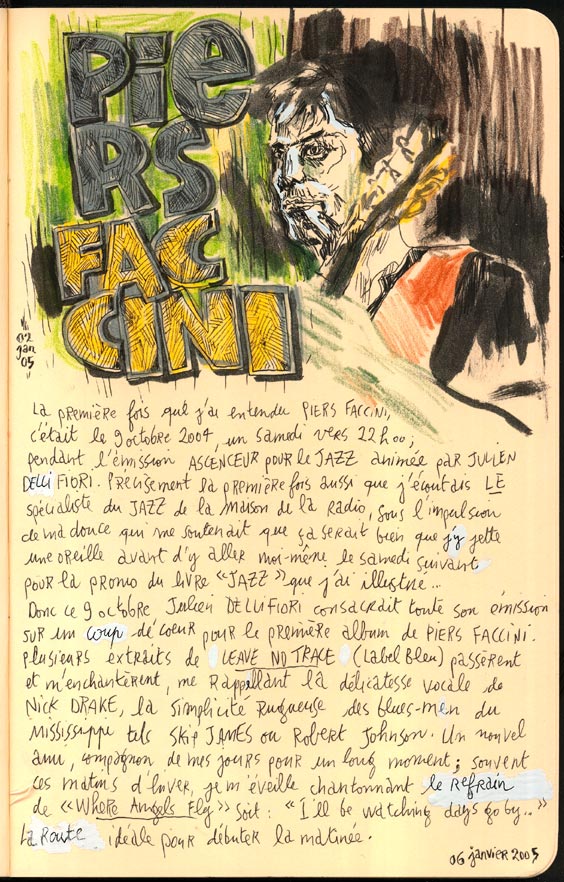 PiE
RS
FAC
CINI
02
jan
05
La première fois que j'ai entendu PIERS FACCINI,
c'était le 9 octobre 2004, un samedi vers 22h00;
pendant l'émission ASCENCEUR POUR le JAZZ animée par JULIEN
DELLI FIORI. Précisément la première fois aussi que j'écoutais LE
spécialiste du JAZZ de la maison de la Radio, sous l'impulsion
de ma douce qui me soutenait que ça serait bien que j'y jette
une oreille avant d'y aller moi-même le samedi suivant
pour la promo du livre "JAZZ" que j'ai illustré...
Donc ce 9 octobre Julien DELLI FIORI consacrait toute son émission
sur un coup de coeur pour le première album de PIERS FACCINI.
Plusieurs extraits de LEAVE NO TRACE (Label Bleu) passèrent
et m'enchantèrent, me rappellant la délicatesse vocale de
NICK DRAKE, la simplicité rugueuse des blues-men du
Mississippi tels SKIP JAMES ou Robert Johnson. Un nouvel
ami, compagnon de mes jours pour un long moment; souvent
ces matins d'hiver, je m'éveille chantonnant le refrain
de "Where Angels Fly" soit: "I'll be watching days go by.."
La Route idéale pour débuter la matinée.
06 janvier 2005